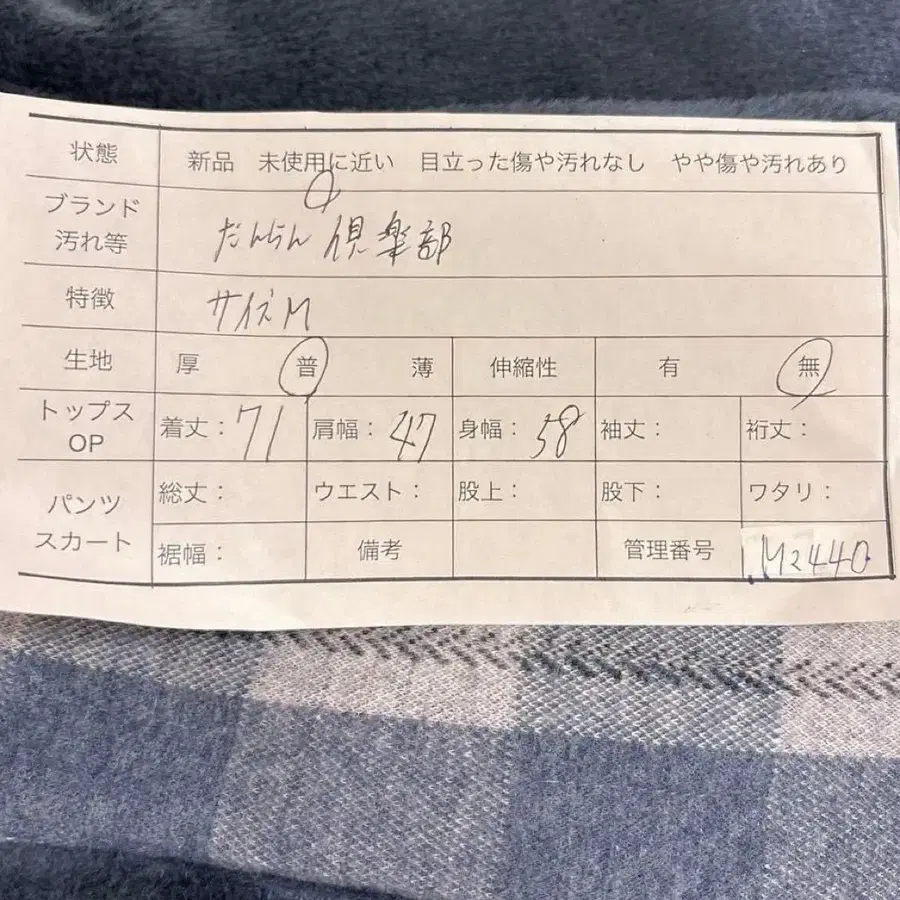 状態 新品 未使用に近い 目立った傷や汚れなし やや傷や汚れあり
ブランド
汚れ等
だんらん倶楽部
特徴 サイズM
生地 厚 普 薄 伸縮性 有 無
トップス
OP
着丈：71 肩幅：47 身幅：58 袖丈： 裄丈：
パンツ
スカート
総丈： ウエスト： 股上： 股下： ワタリ：
裾幅： 備考 管理番号 M2440